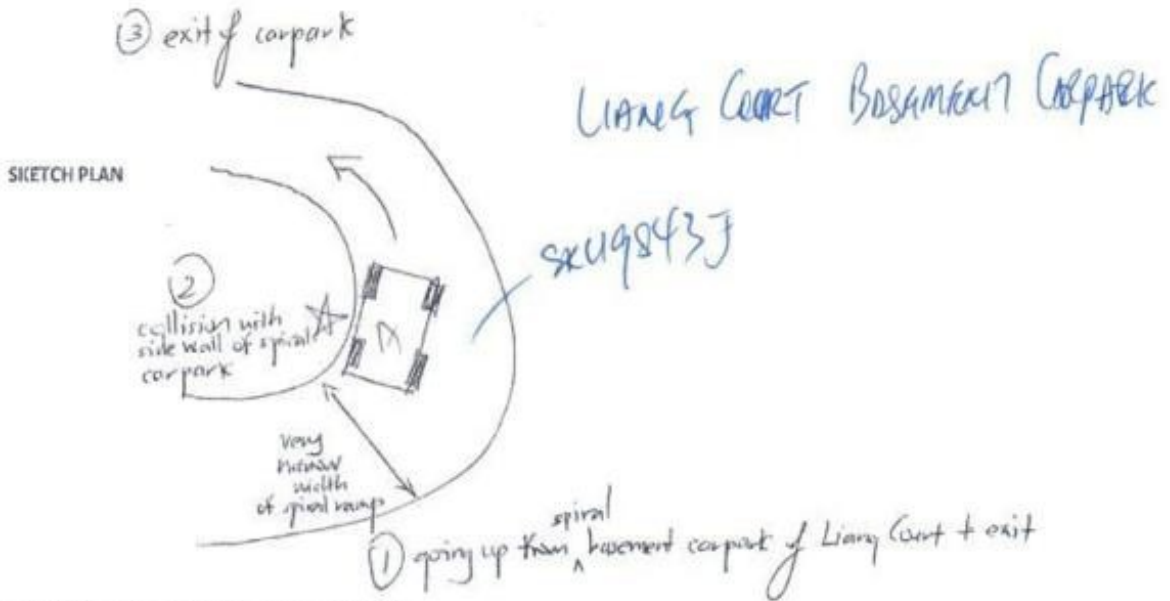 ③ exit of carpark
LIANG COURT BASEMENT CARPARK
SKETCH PLAN
SKU9843J
②
collision with
side wall of spiral
carpark
A
very
narrow
width
of spiral ramp
spiral
① going up from ^ basement carpark of Liang Court + exit